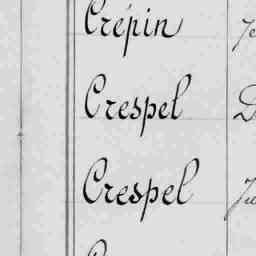 Crépin
Crespel
Crespel